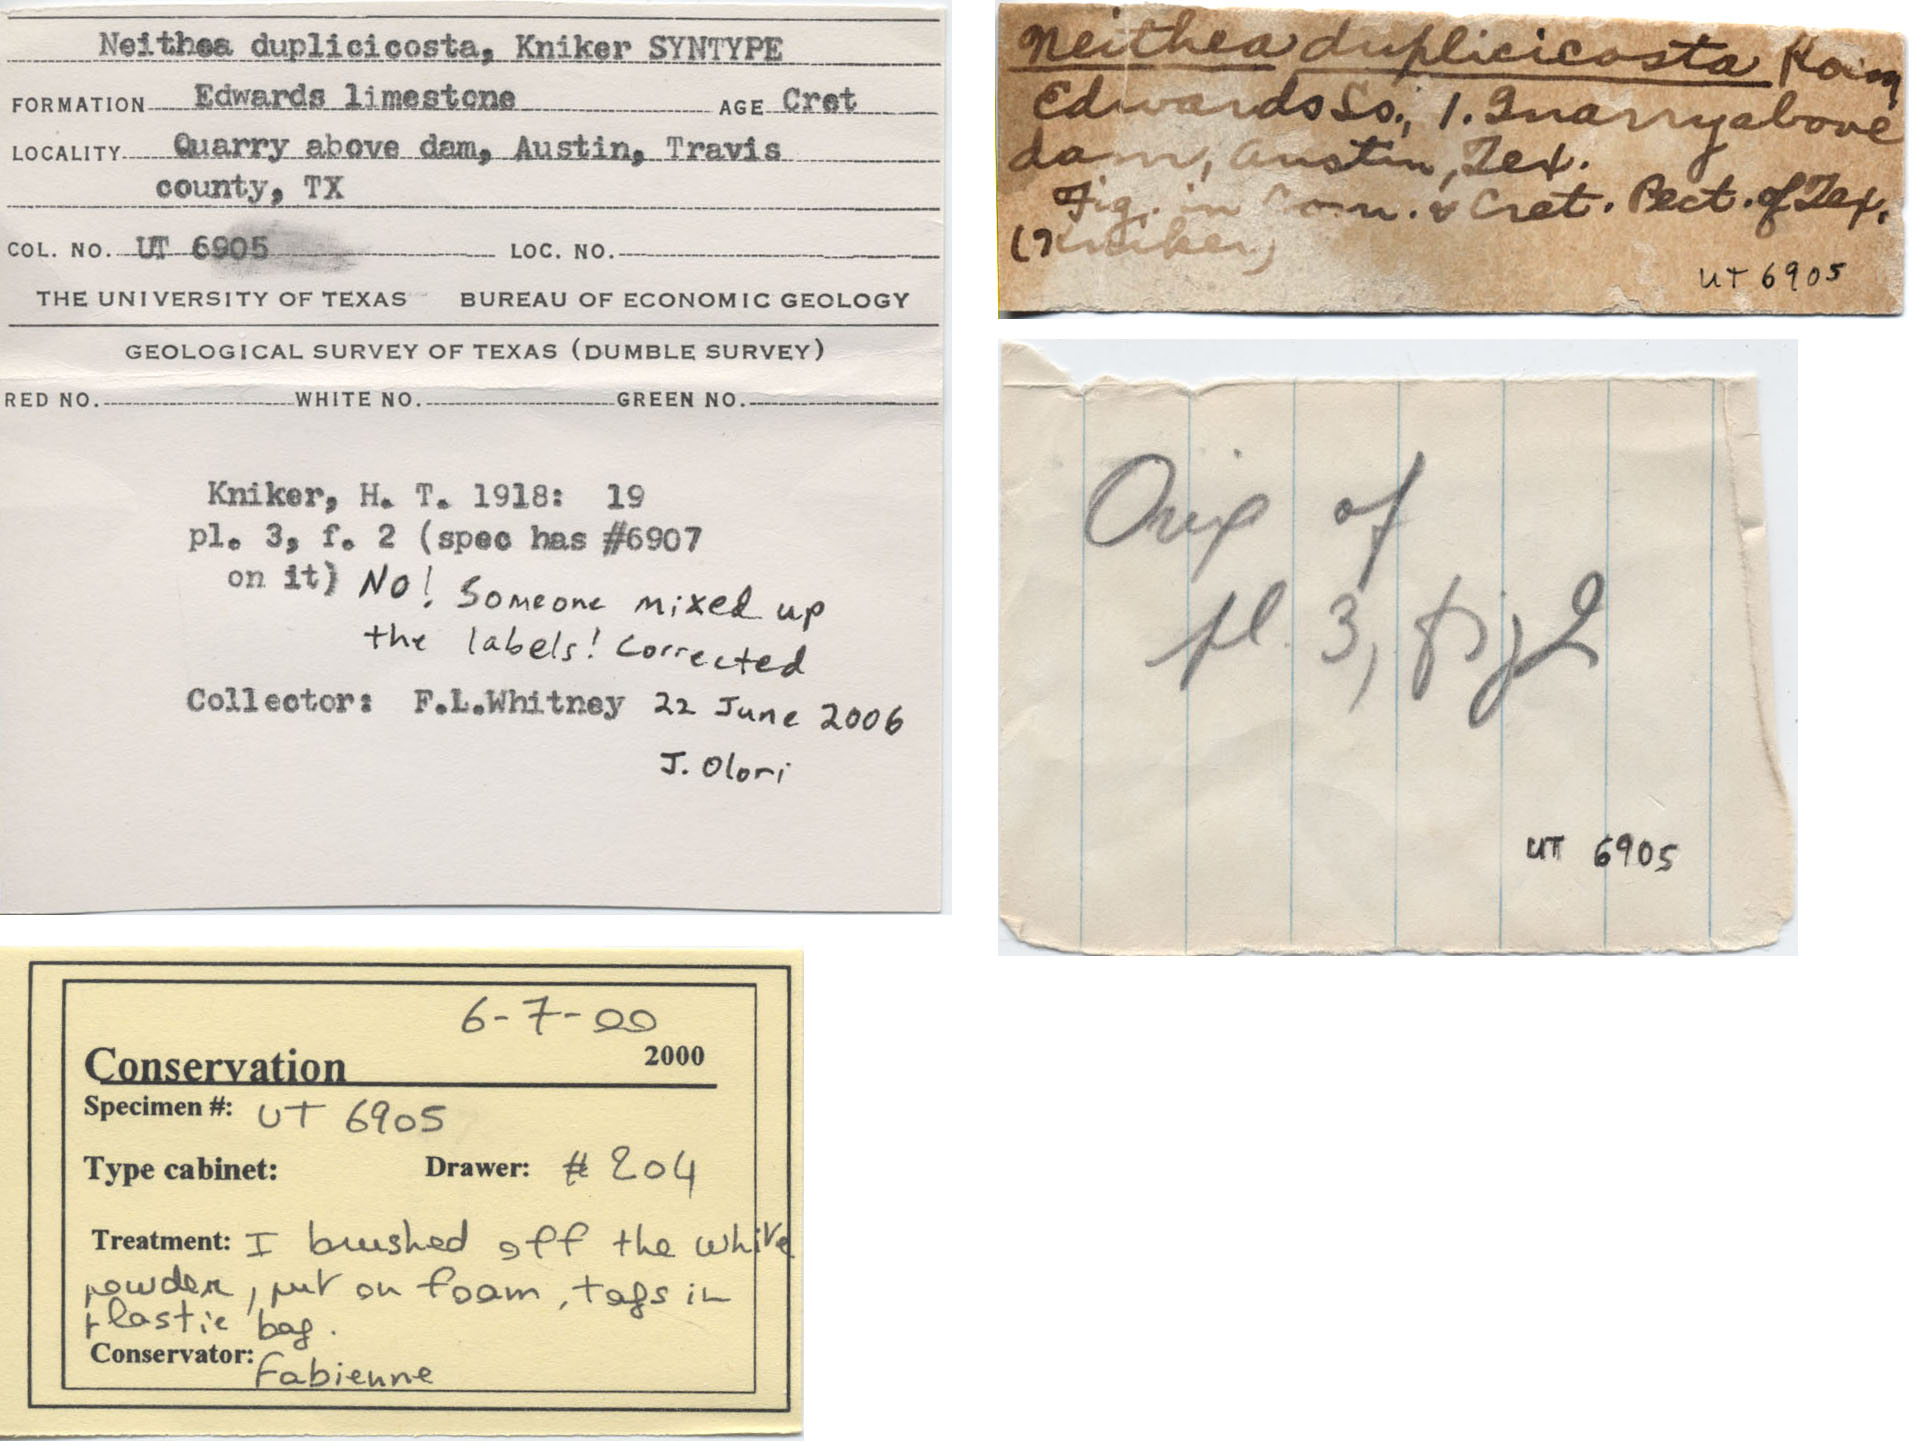 Neithea duplicicosta, Kniker SYNTYPE
FORMATION Edwards limestone AGE Cret
LOCALITY Quarry above dam, Austin, Travis
county, TX
COL. NO. UT 6905 LOC. NO.
THE UNIVERSITY OF TEXAS BUREAU OF ECONOMIC GEOLOGY
GEOLOGICAL SURVEY OF TEXAS (DUMBLE SURVEY)
RED NO. WHITE NO. GREEN NO.
Kniker, H. T. 1918: 19
pl. 3, f. 2 (spec has #6907
on it) NO! Someone mixed up
the labels! Corrected
Collector: F.L.Whitney 22 June 2006
J. Olori
Neithea duplicicosta
Edwards Ls., 1. Quarry above
dam, Austin, Tex.
Fig. in Com. & Cret. Pect. of Tex.
(Kniker)
UT 6905
Orig of
pl. 3, fig 2
UT 6905
6-7-00
Conservation 2000
Specimen #: UT 6905
Type cabinet: Drawer: # 204
Treatment: I brushed off the white
powder, put on foam, tags in
plastic bag.
Conservator: Fabienne